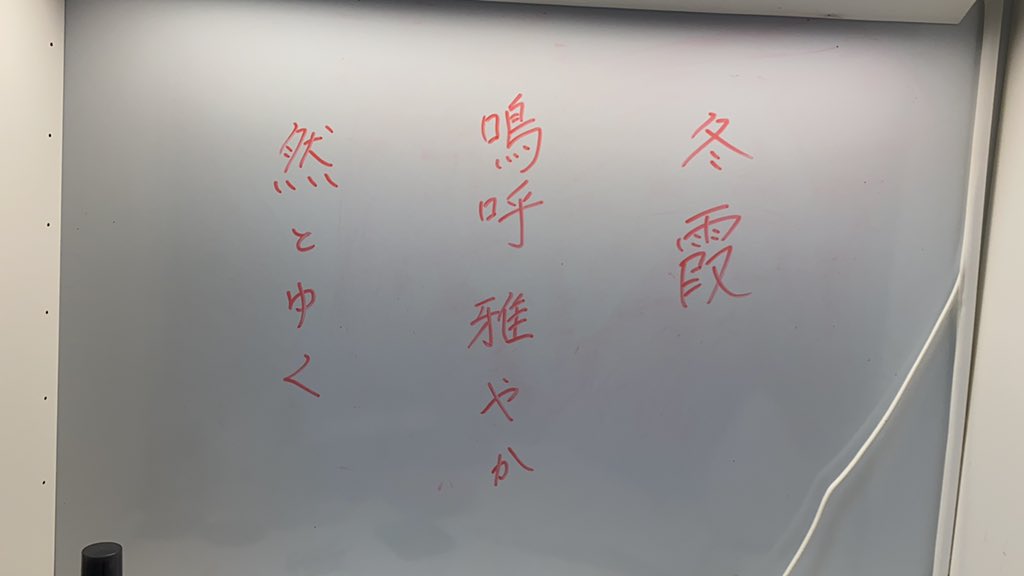 冬霞
嗚呼 雅やか
然とゆく